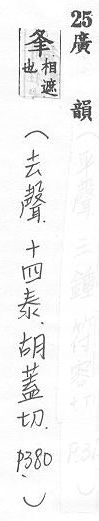 25 廣韻
(平聲 三鍾 符容切
夆 相遮也
(去聲.十四泰.胡蓋切.P380.)